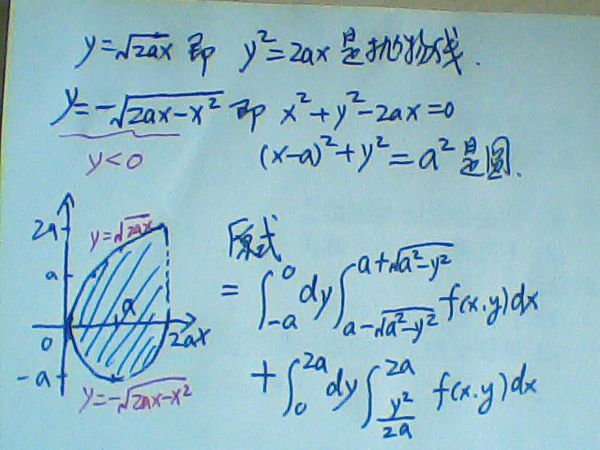 y=√2ax 即 y²=2ax 是抛物线.
y=-√2ax-x² 即 x²+y²-2ax=0
y<0
(x-a)²+y²=a² 是圆.
2a
y=√2ax
a
a
0
2a x
-a
y=-√2ax-x²
原式
=∫₋ₐ⁰dy∫_{a-√a²-y²}^{a+√a²-y²}f(x.y)dx
+∫₀²ᵃdy∫_{y²/2a}^{2a}f(x.y)dx